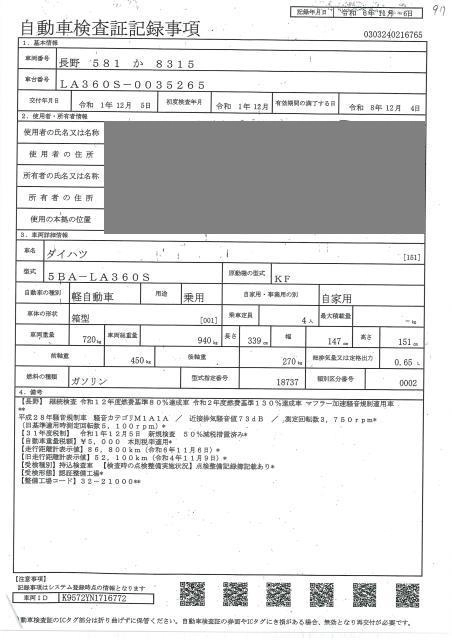 97
記録年月日 令和 6年11月 6日
自動車検査証記録事項
0303240216765
1．基本情報
車両番号 長野 581 か 8315
車台番号 LA360S-0035265
交付年月日 令和 1年12月 5日 初度検査年月 令和 1年12月 有効期間の満了する日 令和 8年12月 4日
2．使用者・所有者情報
使用者の氏名又は名称
使用者の住所
所有者の氏名又は名称
所有者の住所
使用の本拠の位置
3．車両詳細情報
車名 ダイハツ [151]
型式 5BA-LA360S 原動機の型式 KF
自動車の種別 軽自動車 用途 乗用 自家用・事業用の別 自家用
車体の形状 箱型 [001] 乗車定員 4人 最大積載量 -kg
車両重量 720kg 車両総重量 940kg 長さ 339cm 幅 147cm 高さ 151cm
前軸重 450kg 後軸重 270kg 総排気量又は定格出力 0.65 L
燃料の種類 ガソリン 型式指定番号 18737 類別区分番号 0002
4．備考
【長野】 継続検査 令和12年度燃費基準80%達成車 令和2年度燃費基準130%達成車 マフラー加速騒音規制適用車
**
平成28年騒音規制車 騒音カテゴリM1A1A ／ 近接排気騒音値73dB ／ 測定回転数3，750rpm*
(旧基準適用時測定回転数5，100rpm)*
【31年度税制】 令和1年12月5日 新規検査 50%減税措置済み*
【自動車重量税額】￥5，000 本則税率適用*
【走行距離計表示値】86，800km（令和6年11月6日）*
【旧走行距離計表示値】52，100km（令和4年11月9日）*
【受検種別】持込検査車 【検査時の点検整備実施状況】点検整備記録簿記載あり*
【受検形態】認証整備工場*
【整備工場コード】32-21000**
【注意事項】
記録事項はシステム登録時点の情報となります
車両ID K9572YN1716772
自動車検査証のICタグ部分は折り曲げずに保管ください。自動車検査証の券面やICタグにき損がある場合、無効となり再交付が必要です。